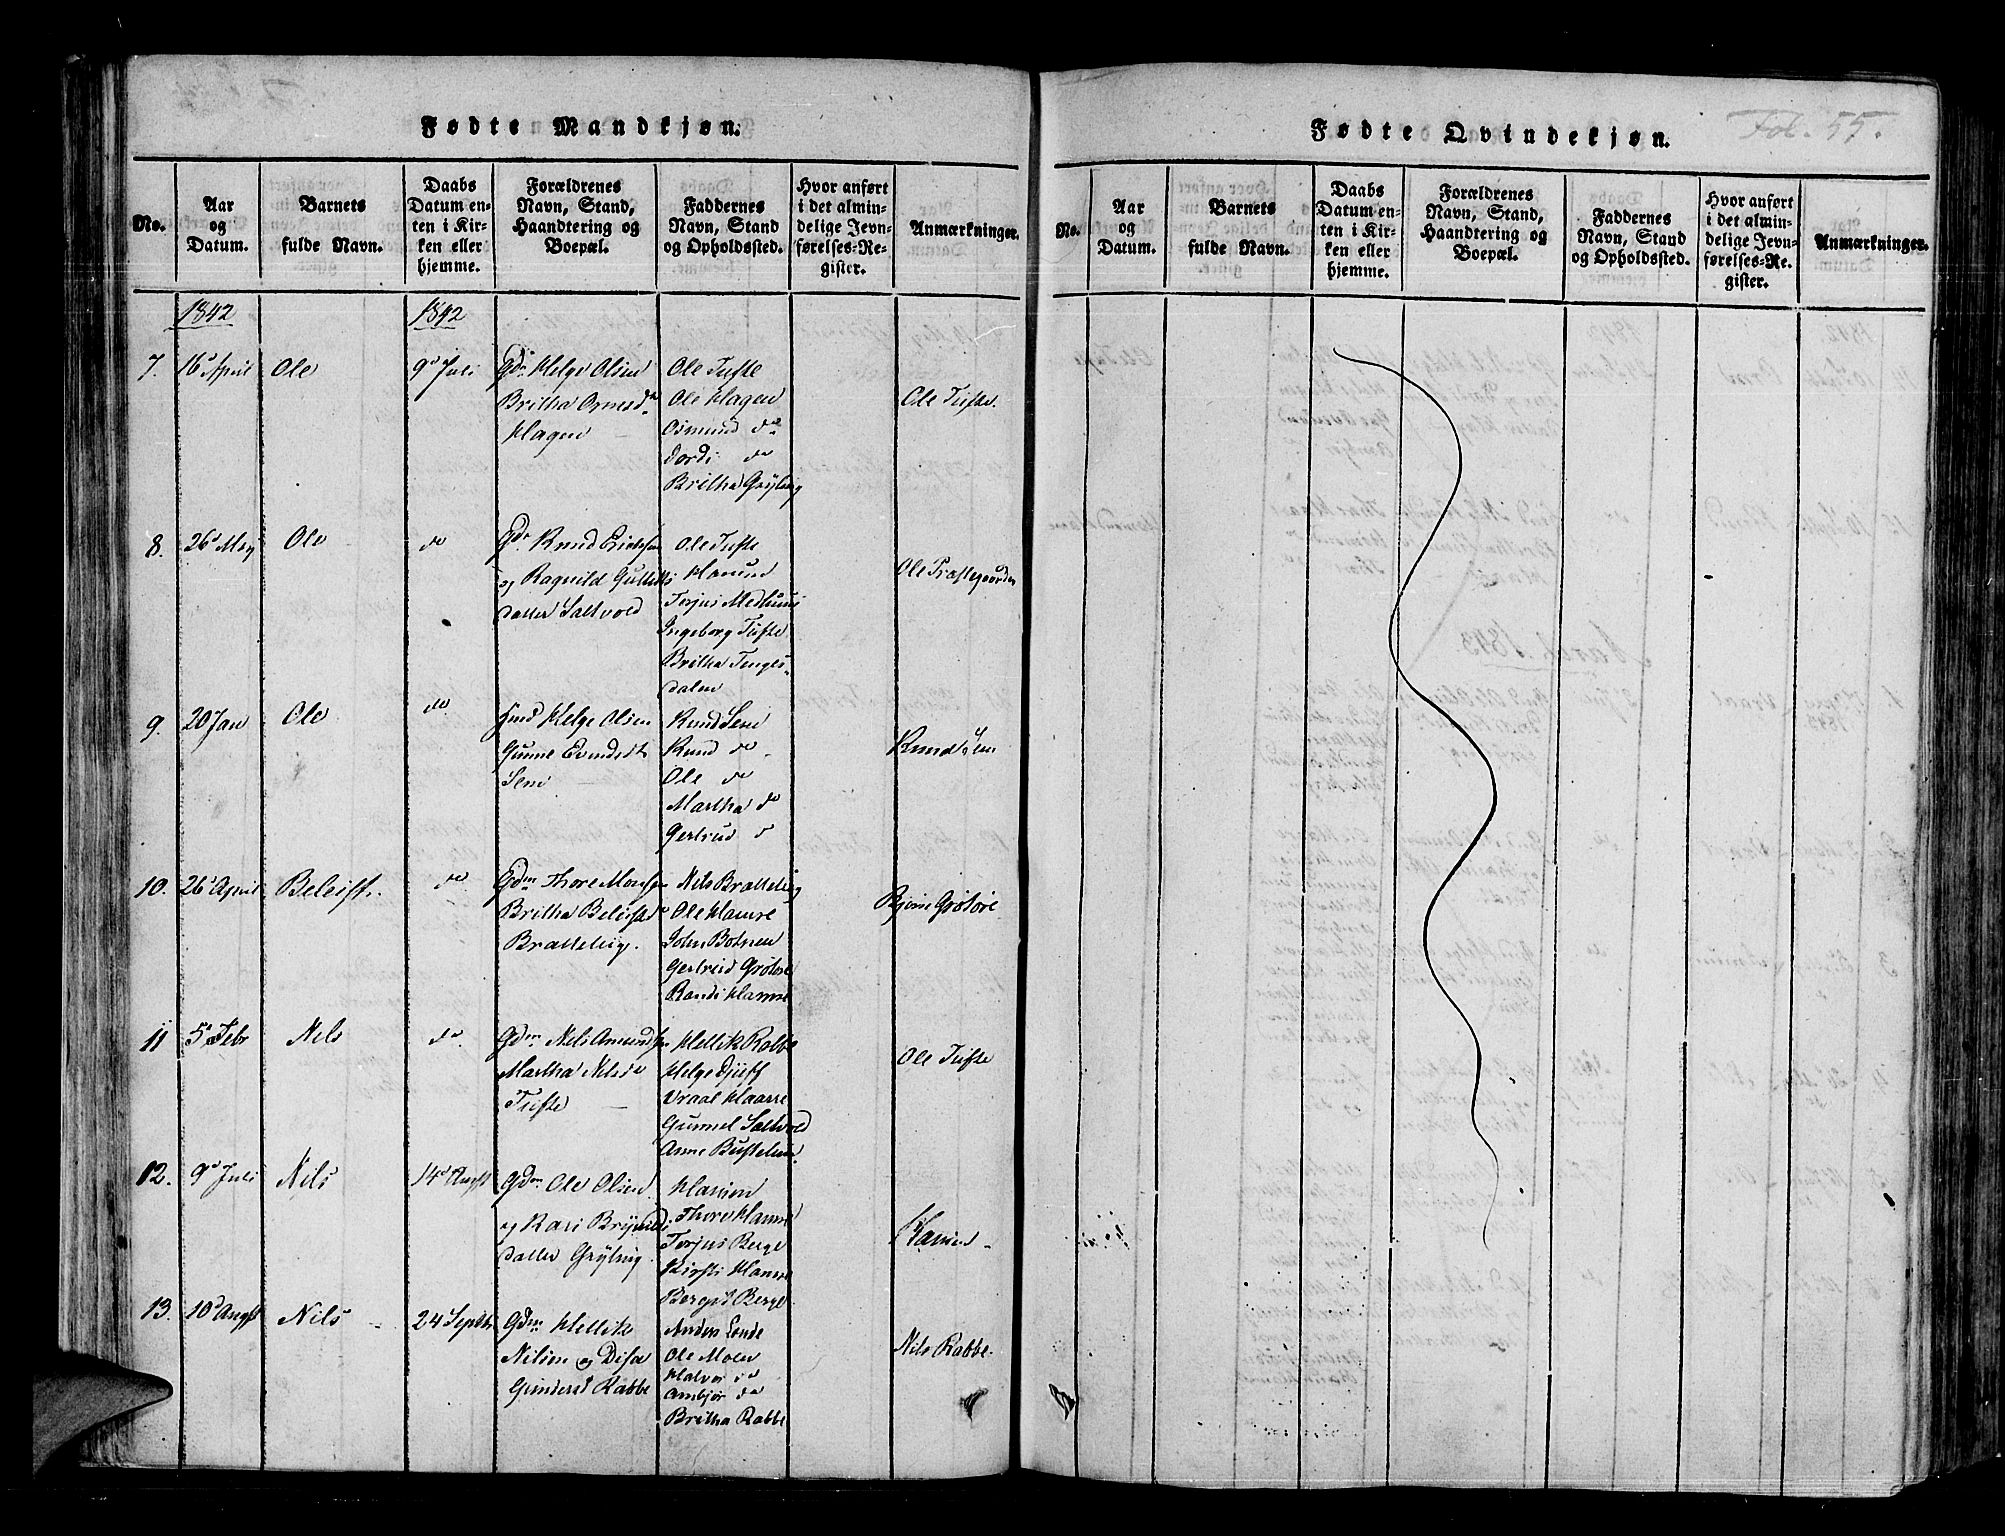 Fødte Mandkjøn.
No.
Aar og Datum.
Barnets fulde Navn.
Daabs Datum enten i Kirken eller hjemme.
Forældrenes Navn, Stand, Haandtering og Boepæl.
Faddernes Navn, Stand og Opholdssted.
Hvor anført i det almindelige Jevnførelses-Register.
Anmærkninger.
1842
1842
7. 16d April Ole 9d Juli
Gdm Helge Olsen
Britha Ormsdr
Hagen
Ole Tufte
Ole Hagen
Osmund do
Dordi do
Britha Gryting
Ole Tufte.
8. 26d May Ole do
Gdr Knud Erichsen
og Ragnild Gulleks
datter Saltvold
Ole Tufte
Torjus Medhuus
Ingeborg Tufte
Britha Tenges-
dalen
Ole Præstegaarden
9. 20 Jan Ole do
Helge Olsen
Gunne Evindsdt
Lene
Knud Lene
Knud do
Ole do
Martha do
Gertrud d
Knud Lene
10. 26d April Beleiff. do
Gdm Thore Monsen
Britha Beleifsd
Bratteteig.
Nils Bratteteig
Ole Hamre
John Botnen
Gertrud Grøtøre
Randi Hamre
Bjørn Grøtøre
11 5d Febr Nils do
Gdm Nels Amundsen
Martha Nelsdr
Tufte
Hellik Rabbe
Helge Djuff
Vraal Haavre
Gunnel Saltvold
Anne Bustelun
Ole Tufte
12. 9d Juli Nils 14d Augst
Gdm Ole Olsen
og Kari Brynilds
datter Gryting
Thore Hamre
Torjus Berge
Kirsti Hamre
Bergit Berge
13. 10d Augst Nils 24 Septbr
Gdm Hellik
Nilsen og Disa
Gundersd Rabbe
Anders Lande
Ole Moen
Halvor do
Ambjør do
Britha Rabbe
Nils Rabbe.
Fødte Qvindekjøn.
Fol. 55.
No.
Aar og Datum.
Barnets fulde Navn.
Daabs Datum enten i Kirken eller hjemme.
Forældrenes Navn, Stand, Haandtering og Boepæl.
Faddernes Navn, Stand og Opholdssted.
Hvor anført i det almindelige Jevnførelses-Register.
Anmærkninger.